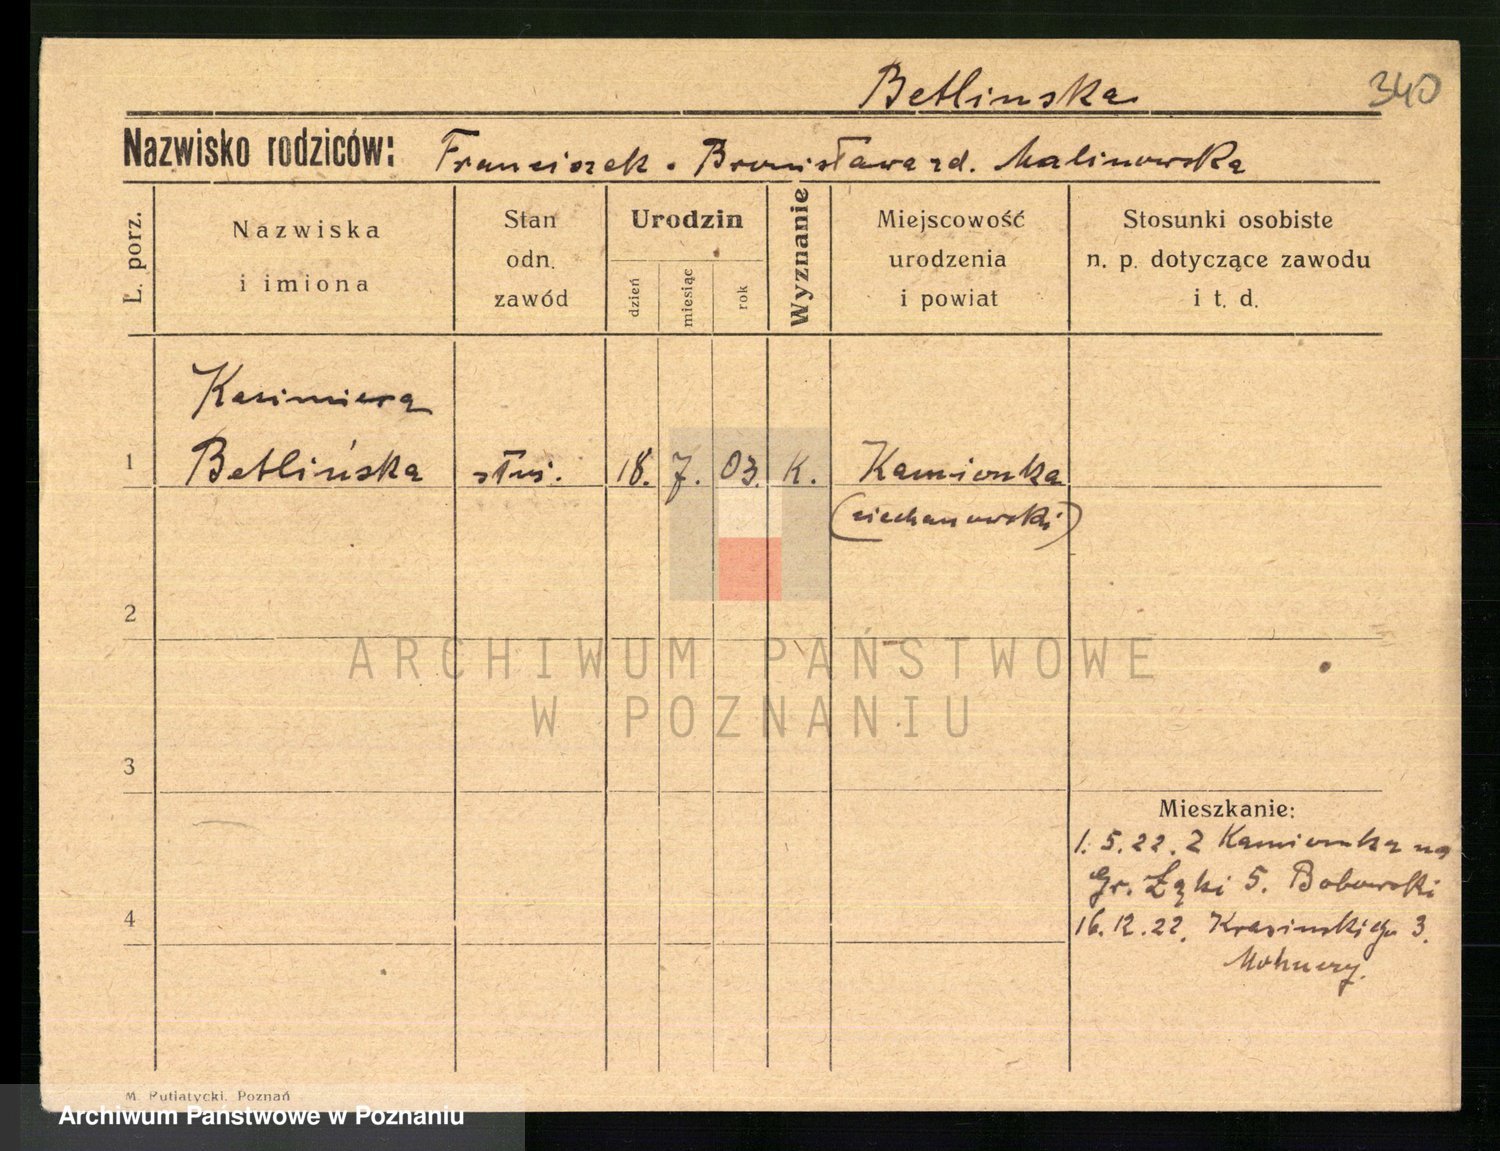 Betlinska
340
Nazwisko rodziców: Franciszek . Bronisława zd. Malinowska
L. porz.
Nazwiska i imiona
Stan odn. zawód
Urodzin
dzień
miesiąc
rok
Wyznanie
Miejscowość urodzenia i powiat
Stosunki osobiste n. p. dotyczące zawodu i t. d.
Kazimiera
1 Betlińska służ. 18. 7. 03. K. Kamionka
(ciechanowski)
2
ARCHIWUM PAŃSTWOWE
W POZNANIU
3
Mieszkanie:
1. 5. 22. Z Kamionka na
Gr. Łąki 5. Bobowski
4
16. 12. 22. Krasinskiego 3.
M. Putiatycki, Poznań
Archiwum Państwowe w Poznaniu